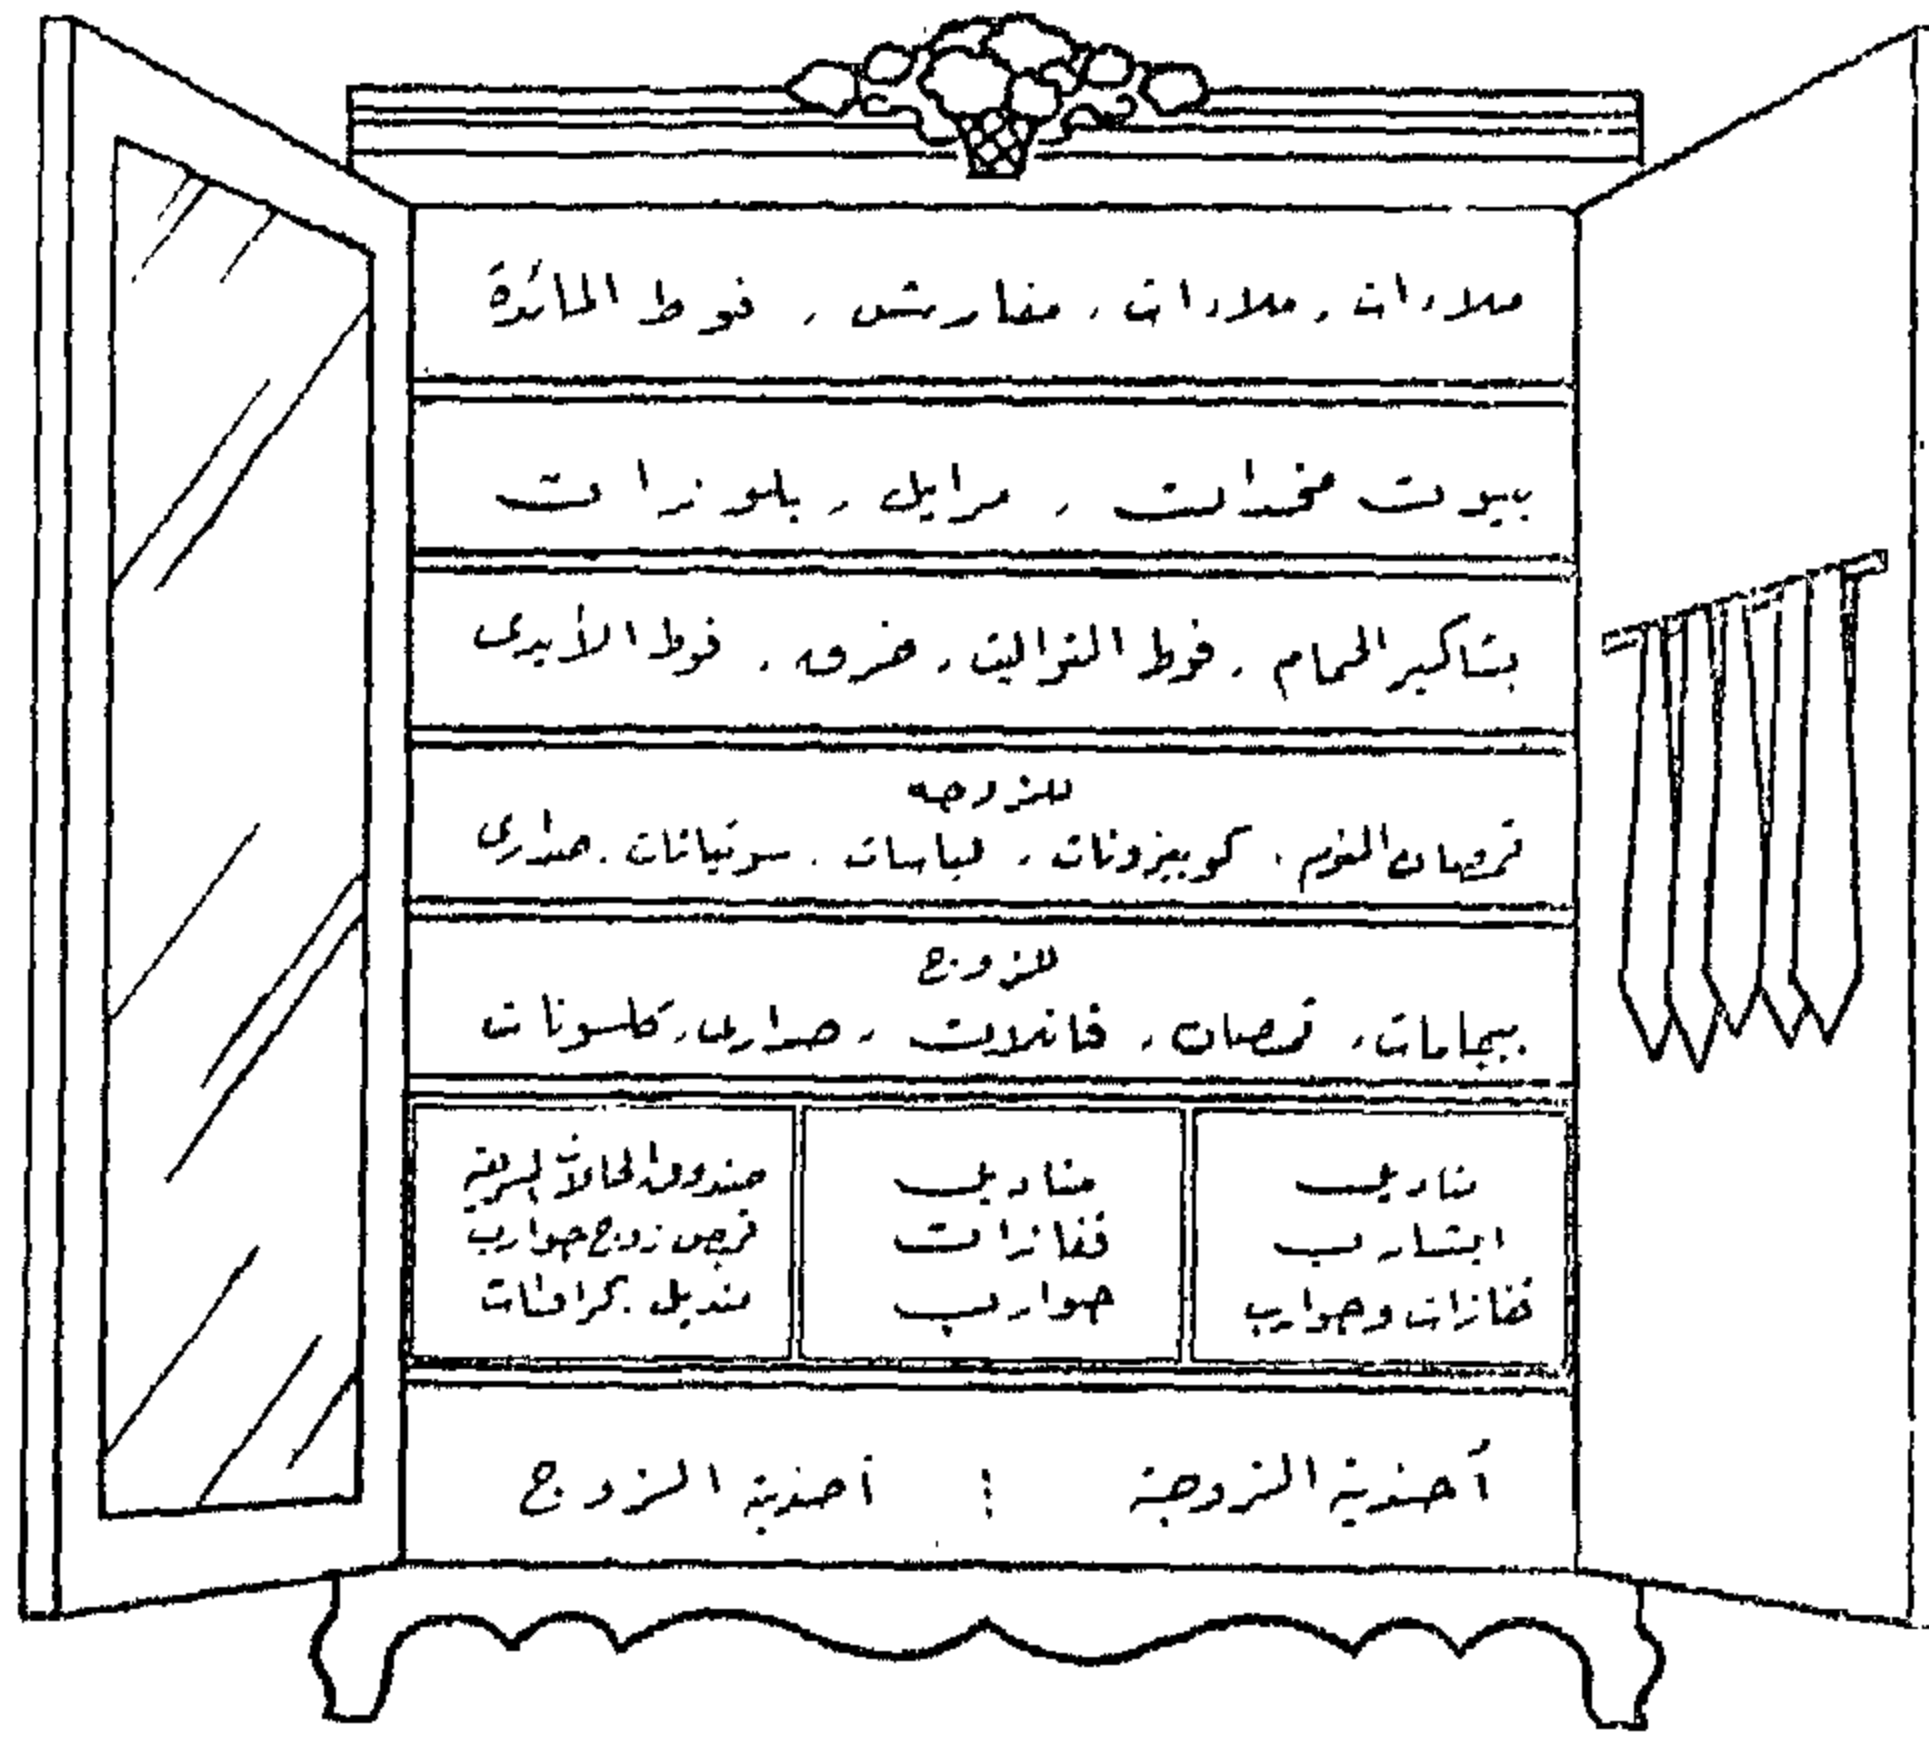 ملاءات ، ملاءات ، مفارش ، فوط المائدة
بيوت مخدات ، مرايل ، بلوزات
بشاكير الحمام ، فوط التواليت ، خرق ، فوط الأيدى
للزوجه
قمصان النوم ، كومبيزونات ، لباسات ، سوتيانات ، صدارى
للزوج
بيجامات ، قمصان ، فانلات ، صدارى ، كلسونات
مناديل
ايشارب
قفازات وجوارب
مناديل
قفازات
جوارب
صندوق الحالات السريعة
قميص زوج جوارب
منديل كرافتات
أحذية الزوجة : أحذية الزوج